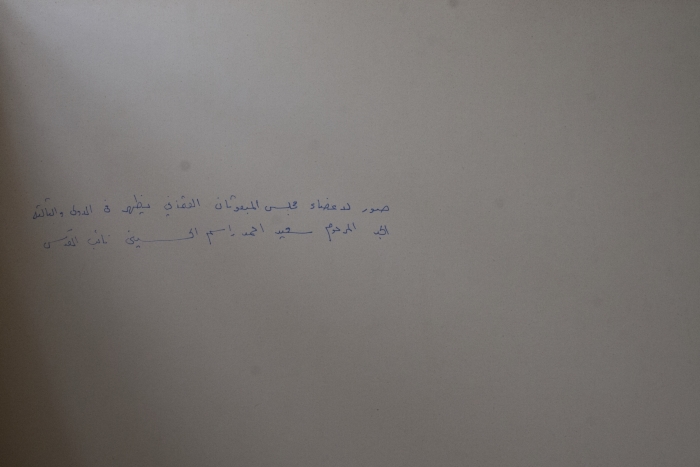 صور لاعضاء مجلس المبعوثان العثماني يظهر في الاولى والثالثه
الجد المرحوم سعيد احمد راسم الحسيني نائب القدس